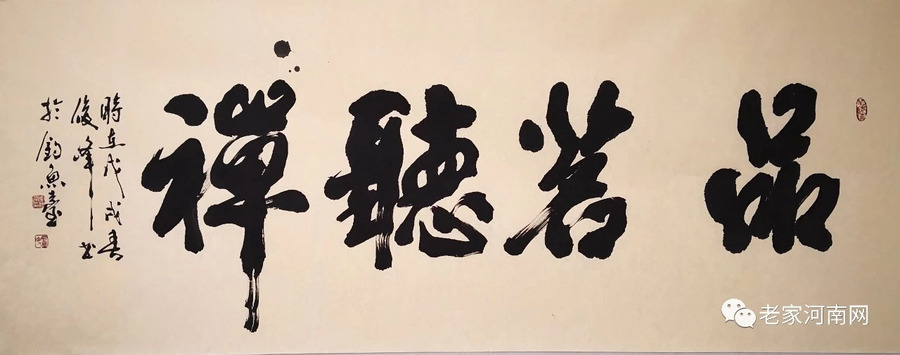 品茗聽禪
時在戊戌春
俊峰书
於釣魚臺
老家河南网